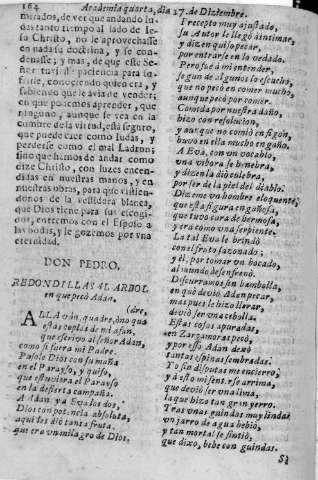 164 Academia quarta, dia 27. de Diziembre.
mirados, de ver que andando Iudas
tanto tiempo al lado de Iesu
Christo, no le aprovechasse
en nada su doctrina, y se condenasse;
y mas, de que este Señor
tuviesse paciencia para sufrirle,
conociendo quien era, y
sabiendo que le avia de vender;
en que podemos aprender, que
ninguno, aunque se vea en la
cumbre de la virtud, està seguro,
que puede caer como Iudas, y
perderse como el mal Ladron;
sino que hemos de andar como
dize Christo, con luzes encendidas
en nuestras manos, y en
nuestras obras, para que vistiendonos
de la vestidura blanca,
que Dios tiene para sus escogidos,
entremos con el Esposo a
las bodas, y le gozemos por vna
eternidad.
DON PEDRO,
REDONDILLAS AL ARBOL
en que pecò Adan.
ALLA vàn, quadre, ò no quadre,
estas coplas de mi afan,
que sirvo al señor Adan,
como si fuera mi Padre.
Pusole Dios con su maña
en el Parayso, y quiso,
que estuviera el Parayso
en la desierta campaña.
A Adan y a Eva los dos,
Dios con potencia absoluta,
aqui les diò tanta fruta,
que era vn milagro de Dios.
I recepto muy ajustado,
su Autor le llegò à intimar,
y dizen quiso pecar,
por entrarse en lo vedado.
Pero fue à mi entender,
segun de algunos lo escucho,
que no pecò en comer mucho,
aunque pecò por comer.
Comida por nuestro daño,
hizo con resolucion,
y aunque no comiò en figon,
huvo en ella mucho engaño.
A Eva, con vn vocablo,
vna vibora se hinebra,
y dizen la diò culebra,
por ser de la piel del diablo.
Dizeme vn hombre eloquente,
que esta figura engañosa,
que tuvo cara de hermosa,
y era como vna serpiente.
La tal Eva le brindò
con el fruto sazonado;
y èl, por tomar vn bocado,
al mundo desenfrenò.
Discurramos sin bambolla,
en què deviò Adan pecar,
mas pues le hizo llorar,
deviò ser vna cebolla.
Estas cosas apuradas,
en Zarzamoras pecò,
y por esso Adan dexò
tantas espinas sembradas.
Yo sin disputas me encierro;
y à esto mi sentir se arrima,
que deviò ser vna lima,
la que hizo tan gran yerro.
Tras vnas guindas muy lindas
vn jarro de agua bebiò,
y tan mortal se sintiò,
que dixo, bebe con guindas.
Si